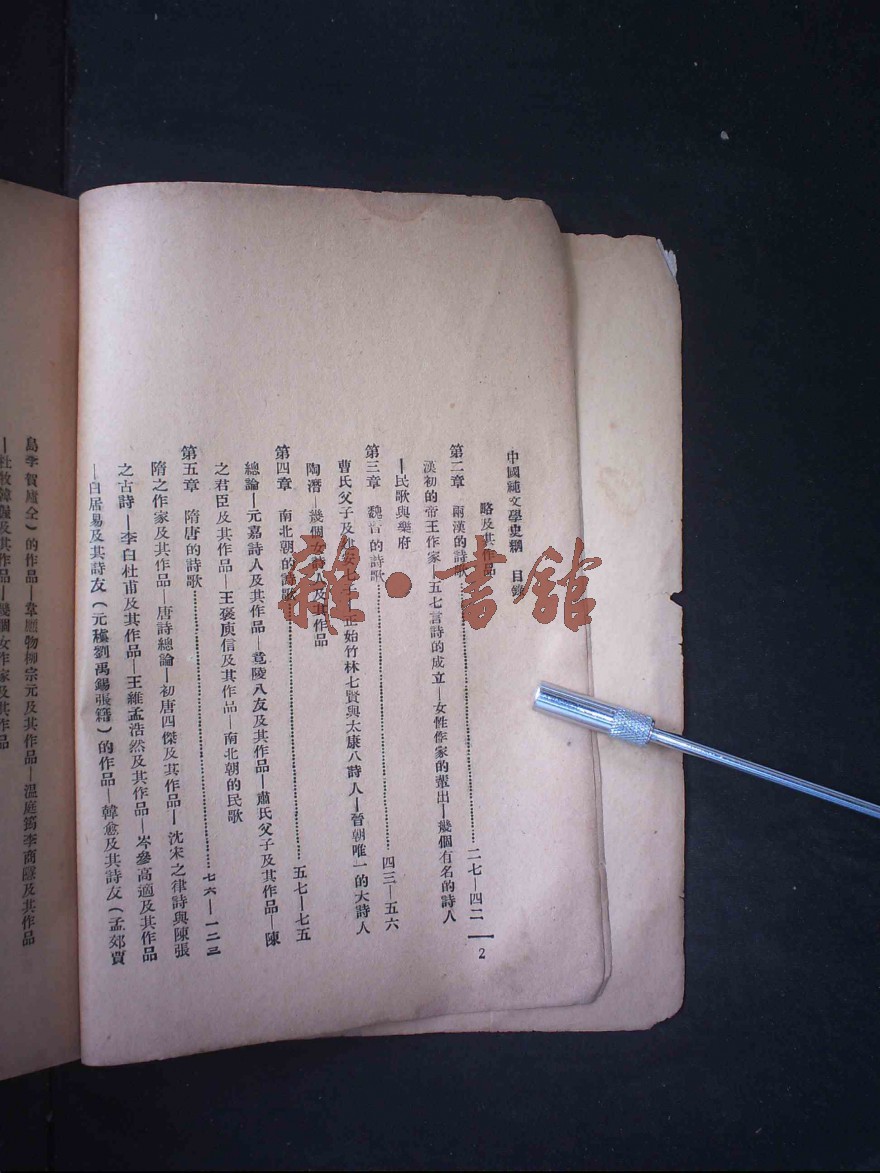 中國純文學史綱　目錄
2
略及其作品
第二章　兩漢的詩歌……二七—四二
漢初的帝王作家—五七言詩的成立—女性作家的輩出—幾個有名的詩人
—民歌與樂府
第三章　魏晋的詩歌……四三—五六
曹氏父子及建安七子—正始竹林七賢與太康八詩人—晉朝唯一的大詩人
陶潛—幾個女詩人及其作品
第四章　南北朝的詩歌……五七—七五
總論—元嘉詩人及其作品—竟陵八友及其作品—蕭氏父子及其作品—陳
之君臣及其作品—王褒庾信及其作品—南北朝的民歌
第五章　隋唐的詩歌……七六—一二三
隋之作家及其作品—唐詩總論—初唐四傑及其作品—沈宋之律詩與陳張
之古詩—李白杜甫及其作品—王維孟浩然及其作品—岑參高適及其作品
—白居易及其詩友（元稹劉禹錫張籍）的作品—韓愈及其詩友（孟郊賈
島李賀盧仝）的作品—韋應物柳宗元及其作品—溫庭筠李商隱及其作品
—杜牧韓偓及其作品—幾個女作家及其作品
雜·書館